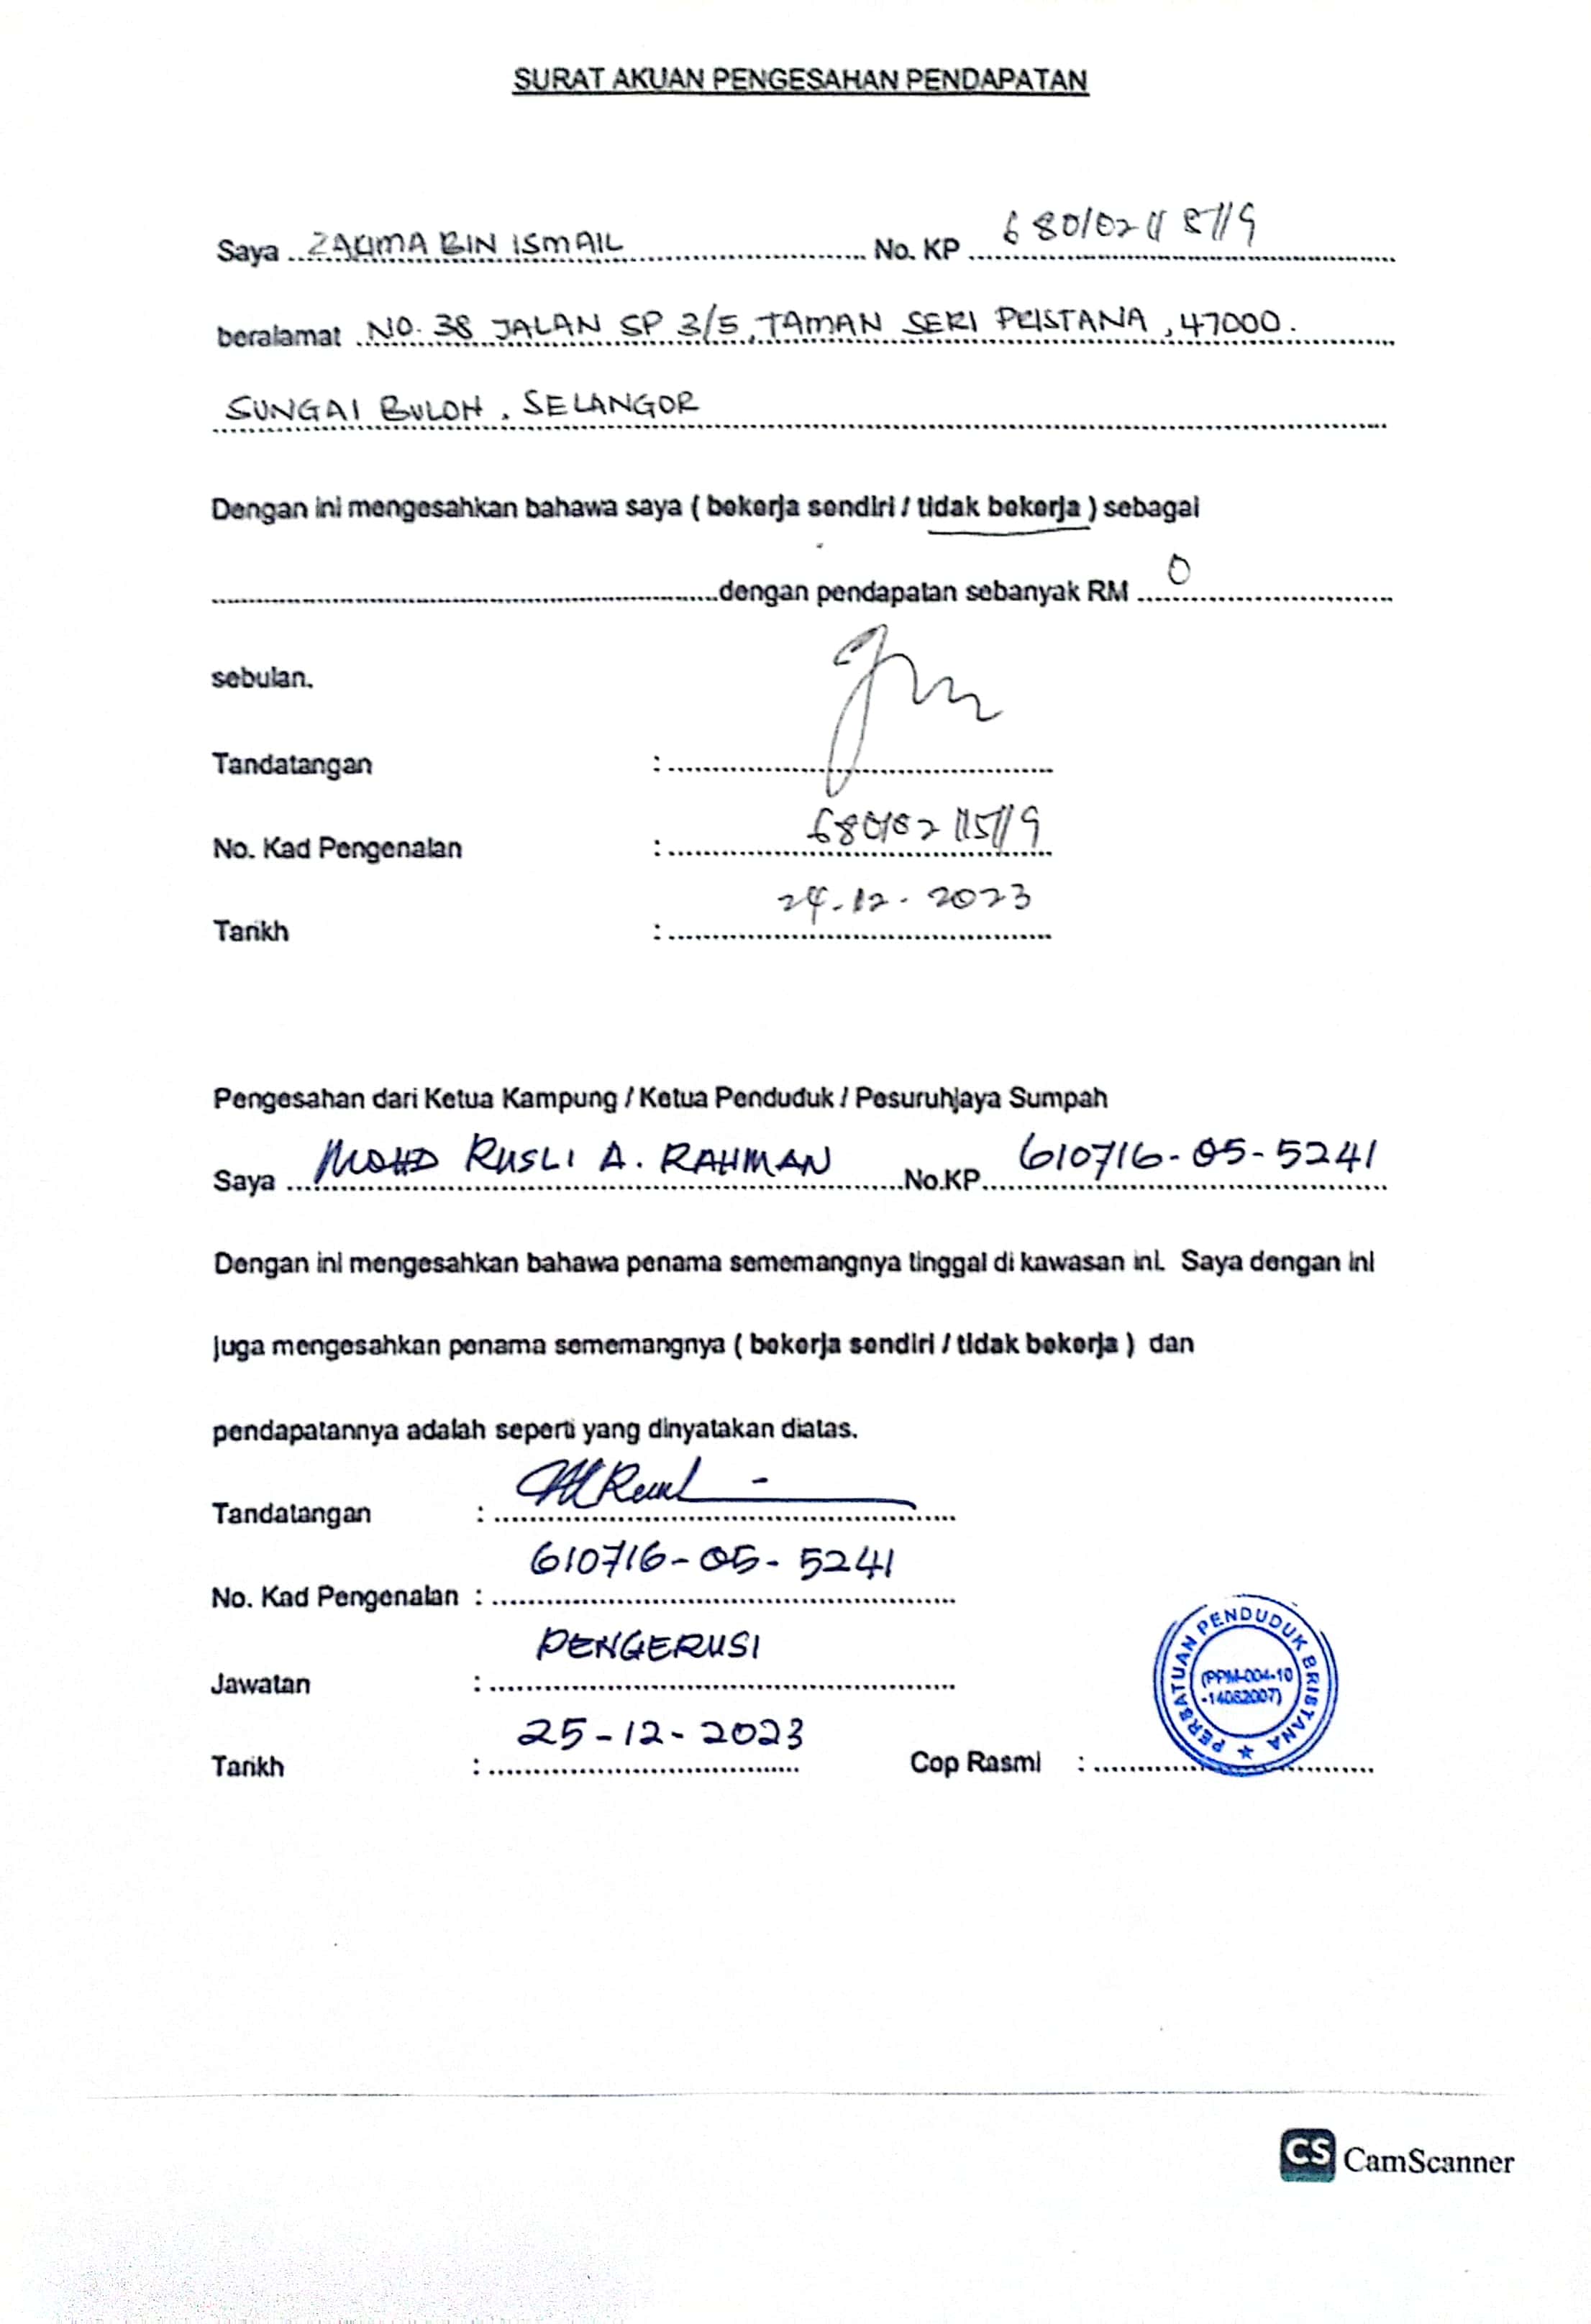 SURAT AKUAN PENGESAHAN PENDAPATAN
Saya ZAKIMA BIN ISMAIL No. KP 680102115119
beralamat NO. 38 JALAN SP 3/5, TAMAN SERI PRISTANA, 47000.
SUNGAI BULOH, SELANGOR
Dengan ini mengesahkan bahawa saya ( bekerja sendiri / tidak bekerja ) sebagai
dengan pendapatan sebanyak RM 0
sebulan.
Tandatangan :
No. Kad Pengenalan : 680102115119
Tarikh : 24.12.2023
Pengesahan dari Ketua Kampung / Ketua Penduduk / Pesuruhjaya Sumpah
Saya MOHD RUSLI A. RAHMAN No.KP 610716-05-5241
Dengan ini mengesahkan bahawa penama sememangnya tinggal di kawasan ini. Saya dengan ini
juga mengesahkan penama sememangnya ( bekerja sendiri / tidak bekerja ) dan
pendapatannya adalah seperti yang dinyatakan diatas.
Tandatangan :
No. Kad Pengenalan : 610716-05-5241
Jawatan : PENGERUSI
Tarikh : 25-12-2023 Cop Rasmi :
PERSATUAN PENDUDUK BRISTANA
(PPM-004-10
-14082007)
CS CamScanner